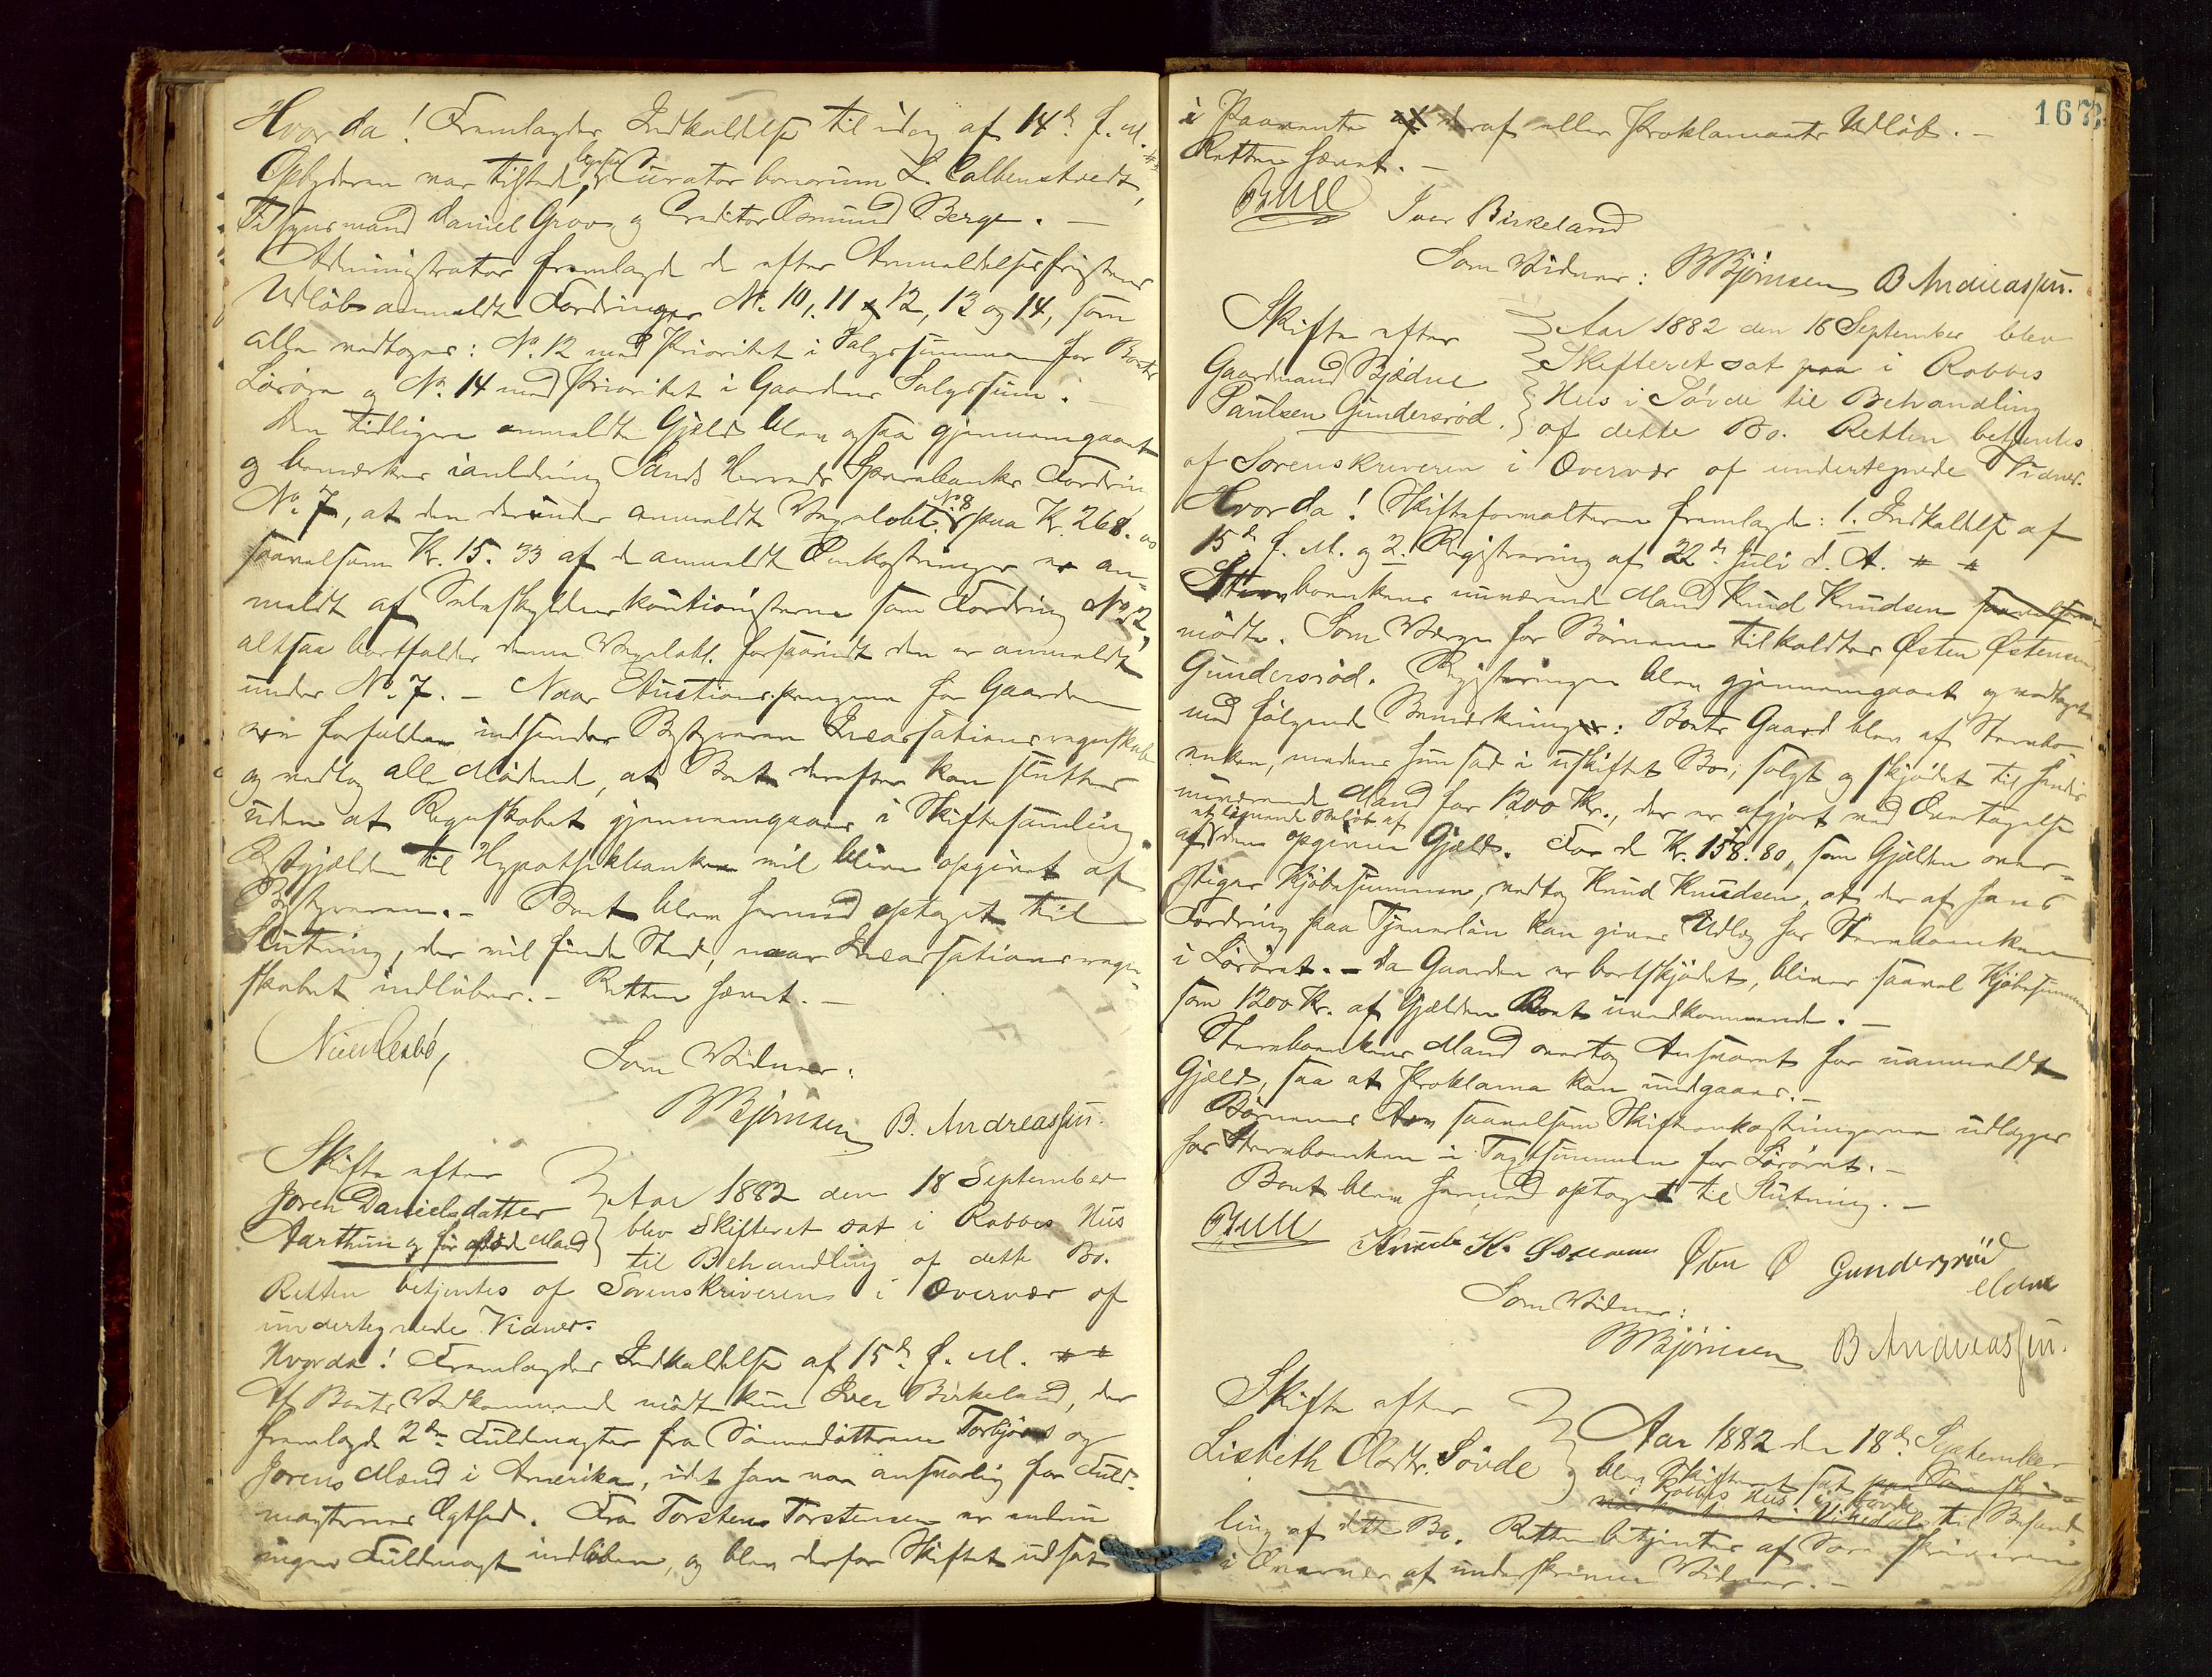 Hvorda! Fremlagdes Indkaldelse til idag af 14de f. M. ⸗⸗
Opbyderen var tilstede, ligesaa Curator bonorum L. Calbenstvedt,
Tilsynsmand Daniel Grove og Creditor Osmund Berge. —
Administrator fremlagde de efter Anmeldelsesfristens
Udløb anmeldte Fordringer No. 10, 11, 12, 13 og 14, som
alle vedtoges: No. 12 med Prioritet i Salgssummen for Boets
Løsøre og No. 14 med Prioritet i Gaardens Salgssum. —
Den tidligere anmeldte Gjæld blev ogsaa gjennemgaaet
og bemærkes ianledning Sands Herreds Sparebanks Fordring
No. 7, at den derunder anmeldte Vexelobl. No. 8 paa Kr. 268.00
saavelsom Kr. 15.33 af de anmeldte Omkostninger er an-
meldt af Selvskyldnerkautionisterne som Fordring No. 12,
altsaa bortfalder denne Vexelobl. forsaavidt den er anmeldt
under No. 7. — Naar Auctionspengene for Gaarden
ere forfaldne indsender Bestyreren Incassationsregnskab
og vedtog alle Mødende, at Boet derefter kan sluttes
uden at Regnskabet gjennemgaaes i Skiftesamling.
Restgjælden til Hypothekbanken vil blive opgivet af
Bestyreren. — Boet blev hermed optaget til
Slutning, der vil finde Sted, naar Incassationsregn-
skabet indløber. — Retten hævet. —
Som Vidner:
BBjørnsen B. Andreassen.
Skifte efter
Joren Danielsdatter
Aarthun og før afdøde Mand
Aar 1882 den 18 September
blev Skifteret sat i Robbes Hus
til Behandling af dette Bo.
Retten betjentes af Sorenskriveren i Overvær af
undertegnede Vidner.
Hvorda! Fremlagdes Indkaldelse af 15de f. M. ⸗⸗
Af Boets Vedkommende mødte kun Iver Birkeland, der
fremlagde 2de Fuldmagter fra Sønnedøttrene Torbjørs og
Jorens Mænd i Amerika, idet han var ansvarlig for Fuld-
magternes Ægthed. Fra Torstens Torstensen er endnu
ingen Fuldmagt indløben, og blev derfor Skiftet udsat
167
i Paavente af deraf eller Proklamaets Udløb. —
Retten hævet. —
Bull Iver Birkeland
Som Vidner: BBjørnsen B Andreassen.
Skifte efter
Gaardmand Bjødne
Paulsen Gundersrød.
Aar 1882 den 18 September blev
Skifteret sat paa i Robbes
Hus i Søvde til Behandling
af dette Bo. Retten betjentes
af Sorenskriveren i Overvær af undertegnede Vidner.
Hvorda! Skifteforvalteren fremlagde: 1. Indkaldelse af
15de f. M. og 2. Registrering af 22de Juli d. A. ⸗ ⸗
Sterboenkens nuværende Mand Knud Knudsen saavelsom
mødte. Som Værge for Børnene tilkaldtes Østen Østensen
Gundersrød. Registreringen blev gjennemgaaet og vedtaget
med følgende Bemærkninger: Boets Gaard blev af Sterbo-
enken, medens hun sad i uskiftet Bo, solgt og skjødet til hendes
nuværende Mand for 1200 Kr., der er afgjort med Overtagelse
af et lignende Beløb af den opgivne Gjæld. For de Kr. 158.80, som Gjælden over-
stiger Kjøbesummen, vedtog Knud Knudsen, at der af hans
Fordring paa Tjenerløn kan gives Udlæg for Sterboenken
i Løsøret. — Da Gaarden er bortskjødet, bliver saavel Kjøbesummen
som 1200 Kr. af Gjælden Boet uvedkommende. —
Sterboenkens Mand overtog Ansvaret for uanmeldt
Gjæld, saa at Proklama kan undgaaes. —
Børnenes Arv saavelsom Skifteomkostningerne udlægges
hos Sterboenken i Taxtsummen for Løsøret. —
Boet blev hermed optaget til Slutning. —
Bull Knud K. Østen Ø Gundersrød
Som Vidner:
BBjørnsen B Andreassen.
Skifte efter
Lisbeth Oladtr. Søvde
Aar 1882 den 18de September
blev Skifteret sat paa
Robbes Hus i Søvde til Behand
ling af dette Bo. Retten betjentes af Sorenskriveren
i Overvær af underskrevne Vidner. —